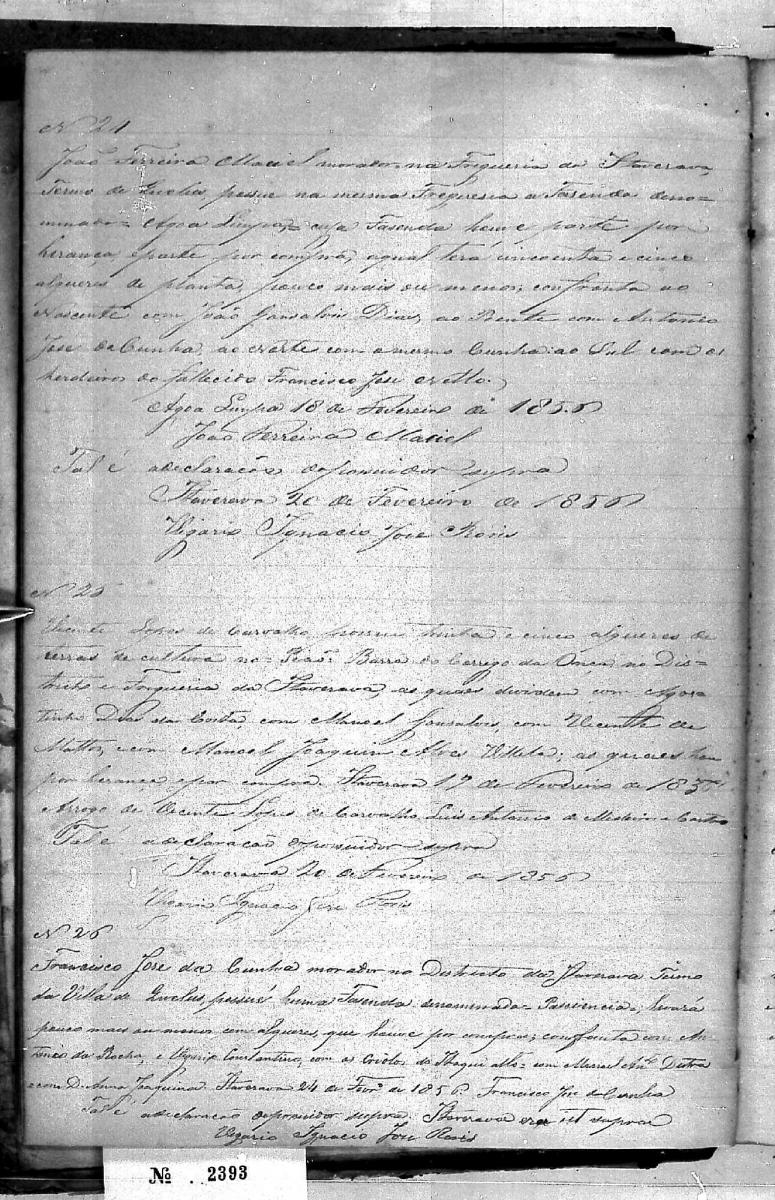 N 24
João Ferreira Maciel morador na Freguesia da Itaverava,
Termo de Queluz, possue na mesma Freguesia a Fasenda deno=
minada= Agoa Limpa, cuja Fasenda houve parte por
herança, e parte por compra, aqual terá cincoenta e cinco
alqueres de planta, pouco mais ou menos; confronta ao
Nascente com João Gonsalves Dias, ao Poente com Antonio
Jose da Cunha, ao Norte com o mesmo Cunha: ao Sul com os
herdeiros do fallecido Francisco Jose
Agoa Limpa 18 de Fevereiro de 1856
João Ferreira Maciel
Tal é a declaração do possuidor supra
Itaverava 20 de Fevereiro de 1856
Vigario Ignacio Jose
N 25
Vicente Lopes de Carvalho, possue trinta e cinco alqueres de
terras de cultura no Barra do Corrego da Onca, no Dis=
trito e Freguesia da Itaverava, as quaes dividem com Agos
tinho Dias da Costa, com Manoel Gonsalves, com Vicente de
Mattos, e com Manoel Joaquim Alves Villela; as quaes hou
por herança e por compra. Itaverava 17 de Fevereiro de 1856
Arrogo de Vicente Lopes de Carvalho, Luis Antonio de Medeiros e Castro
Tal é a declaração do possuidor supra
Itaverava 20 de Fevereiro de 1856
Vigario Ignacio Jose
N 26
Francisco Jose da Cunha morador no Districto da Itaverava Termo
da Villa de Queluz, possue huma Fasenda denominada= Paciencia=; levará
pouco mais ou menos cem alqueres, que houve por compras; confronta com An
tonio da Rocha, e Vigario Constantino, com os do com Manoel Anto Dutra
e com D. Anna Joaquina. Itaverava 24 de Fevro de 1856. Francisco Jose da Cunha
Tal é a declaração do possuidor supra. Itaverava era ut supra
Vigario Ignacio Jose
No 2393